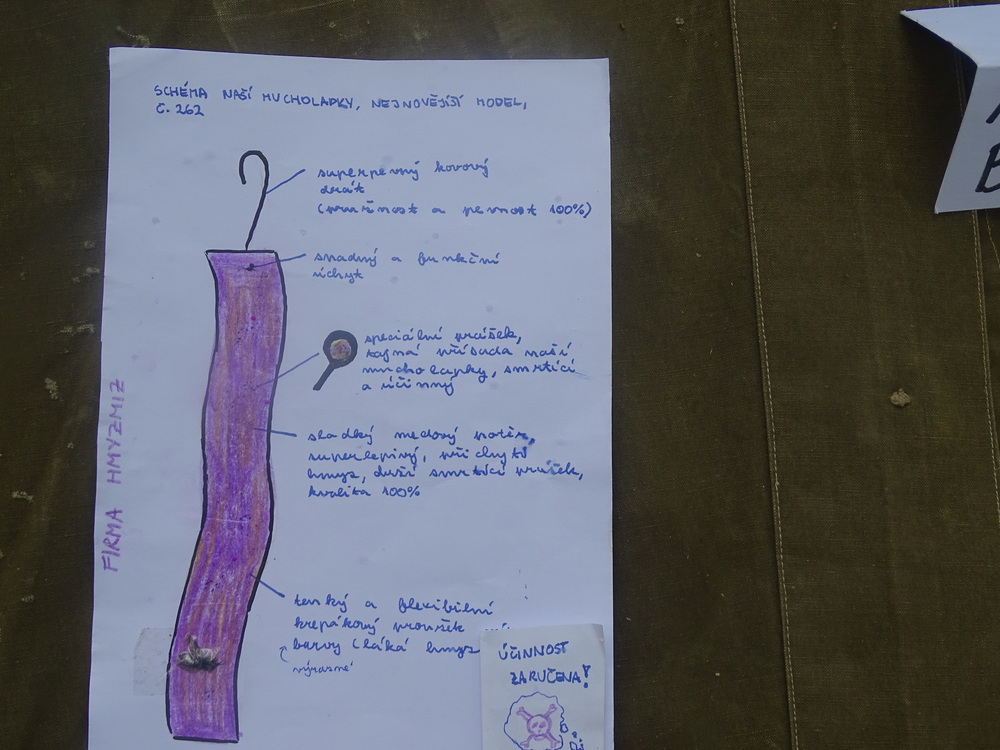 SCHÉMA NAŠÍ MUCHOLAPKY, NEJNOVĚJŠÍ MODEL,
Č. 262
superpevný kovový
drát
(pružnost a pevnost 100%)
snadný a funkční
úchyt
speciální prášek,
tajná přísada naší
mucholapky, smrtící
a účinný
sladký medový potěr,
superlepivý, přichytí
hmyz, drží smrtící prášek,
kvalita 100%
tenký a flexibilní
krepákový proužek
barvy (láká hmyz
výrazné
FIRMA HMYZMIZ
ÚČINNOST
ZARUČENA!
B